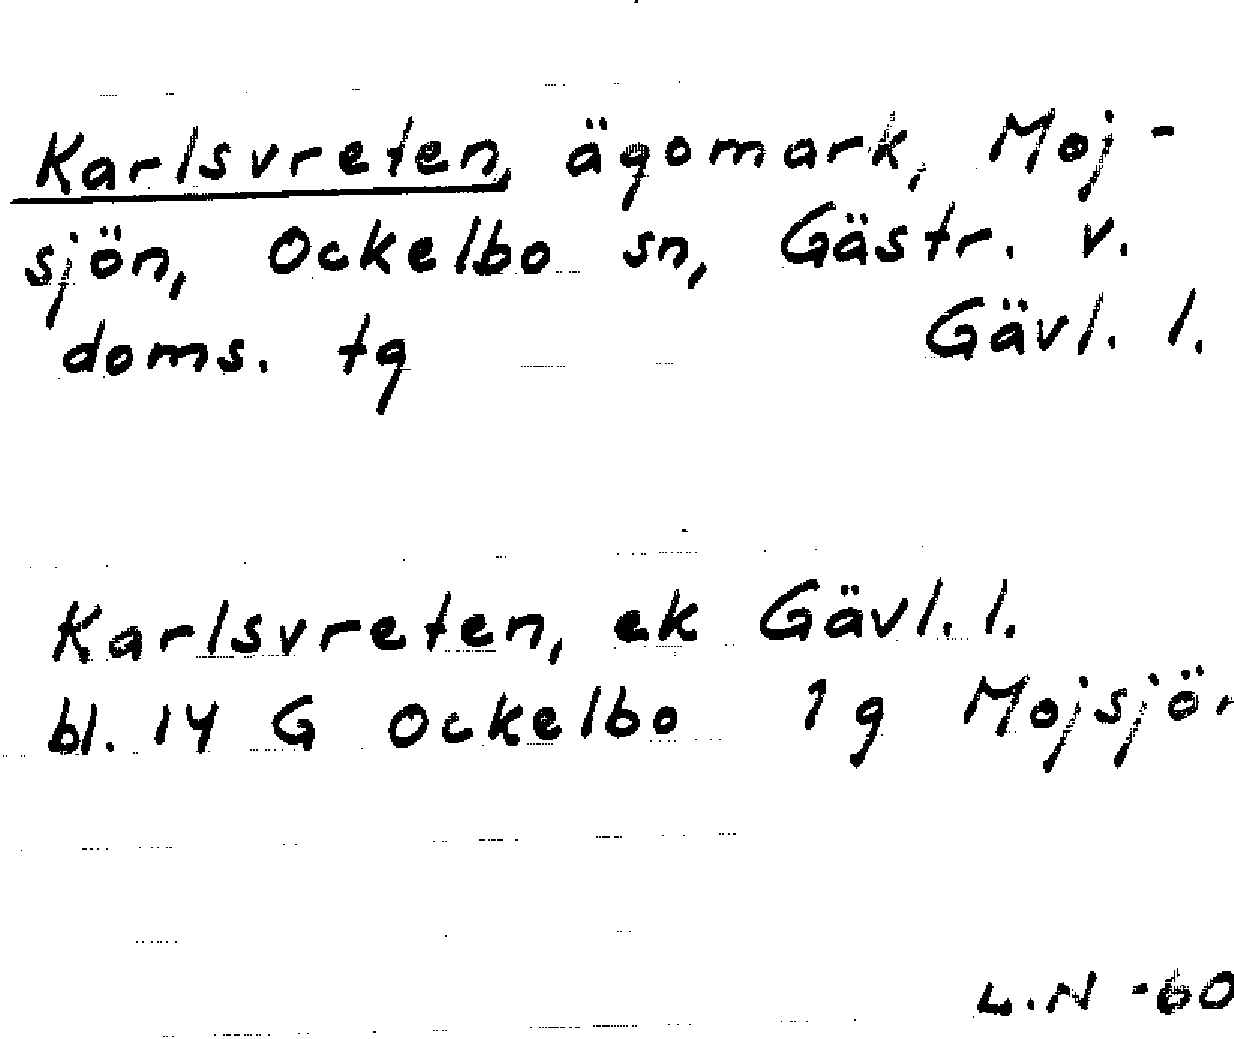 Karlsvreten, ägomark, Moj-
sjön, Ockelbo sn, Gästr. v.
doms. tg Gävl. l.
Karlsvreten, ek Gävl. l.
bl. 14 G Ockelbo 1g Mojsjön
L.N -60